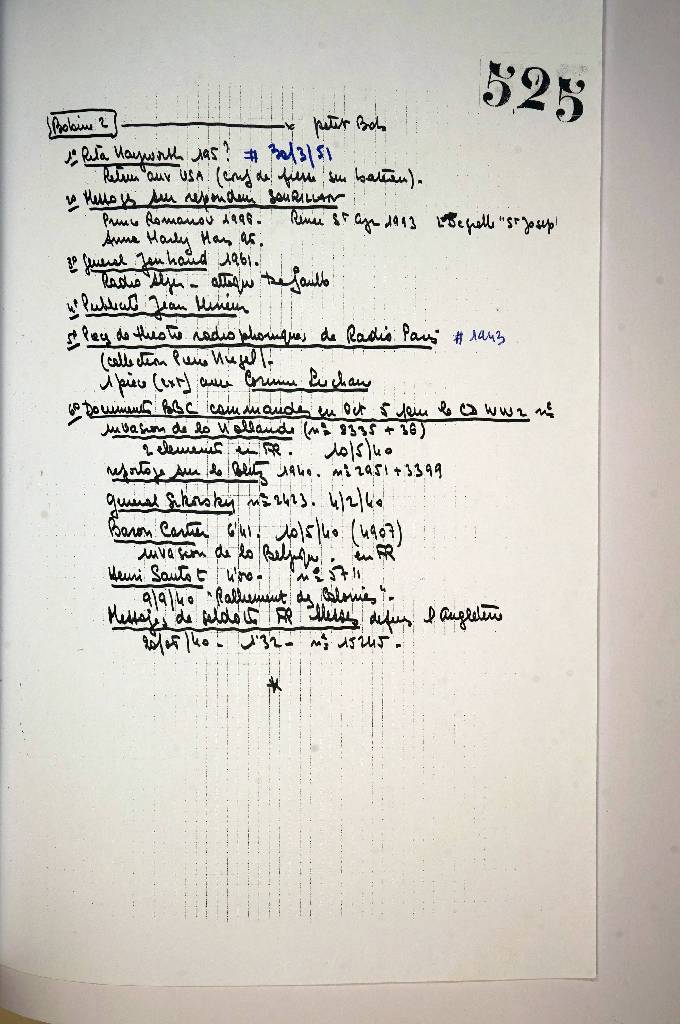 525
Bobine 2 petit Bob
1° Rita Hayworth 195? # 30/3/51
Retour aux USA (conf de presse sur bateau).
2° Messages sur repondeur SOURILLAN
Prince Romanov 1998. Renée St Cyr 1993 L. Degrelle "St Josep"
Anne Marly Mars 95.
3° General Jouhaud 1961.
Radio Alger - attaque De Gaulle
4° Publicité Jean
5° Pieces de theatre radiophoniques de Radio Paris # 1943
(collection Pierre).
1 pièce (ext) avec Corinne Luchaire
6° Documents BBC commandés en Oct 5 pour le CD WW2 n°
invasion de la Hollande (n° 8335 + 36)
2 elements en FR. 10/5/40
reportage sur le Blitz 1940. n° 2951 + 3399
general Sikorsky n° 2423. 4/2/40
Baron Cartier 6'41. 10/5/40 (4907)
invasion de la Belgique. en FR
Henri Sautot 4'00 - n° 5711
9/9/40 "Ralliement des Colonies".
Messages de soldats FR blessés depuis l'Angleterre
20/05/40 - 1'32 - n° 15245.
*